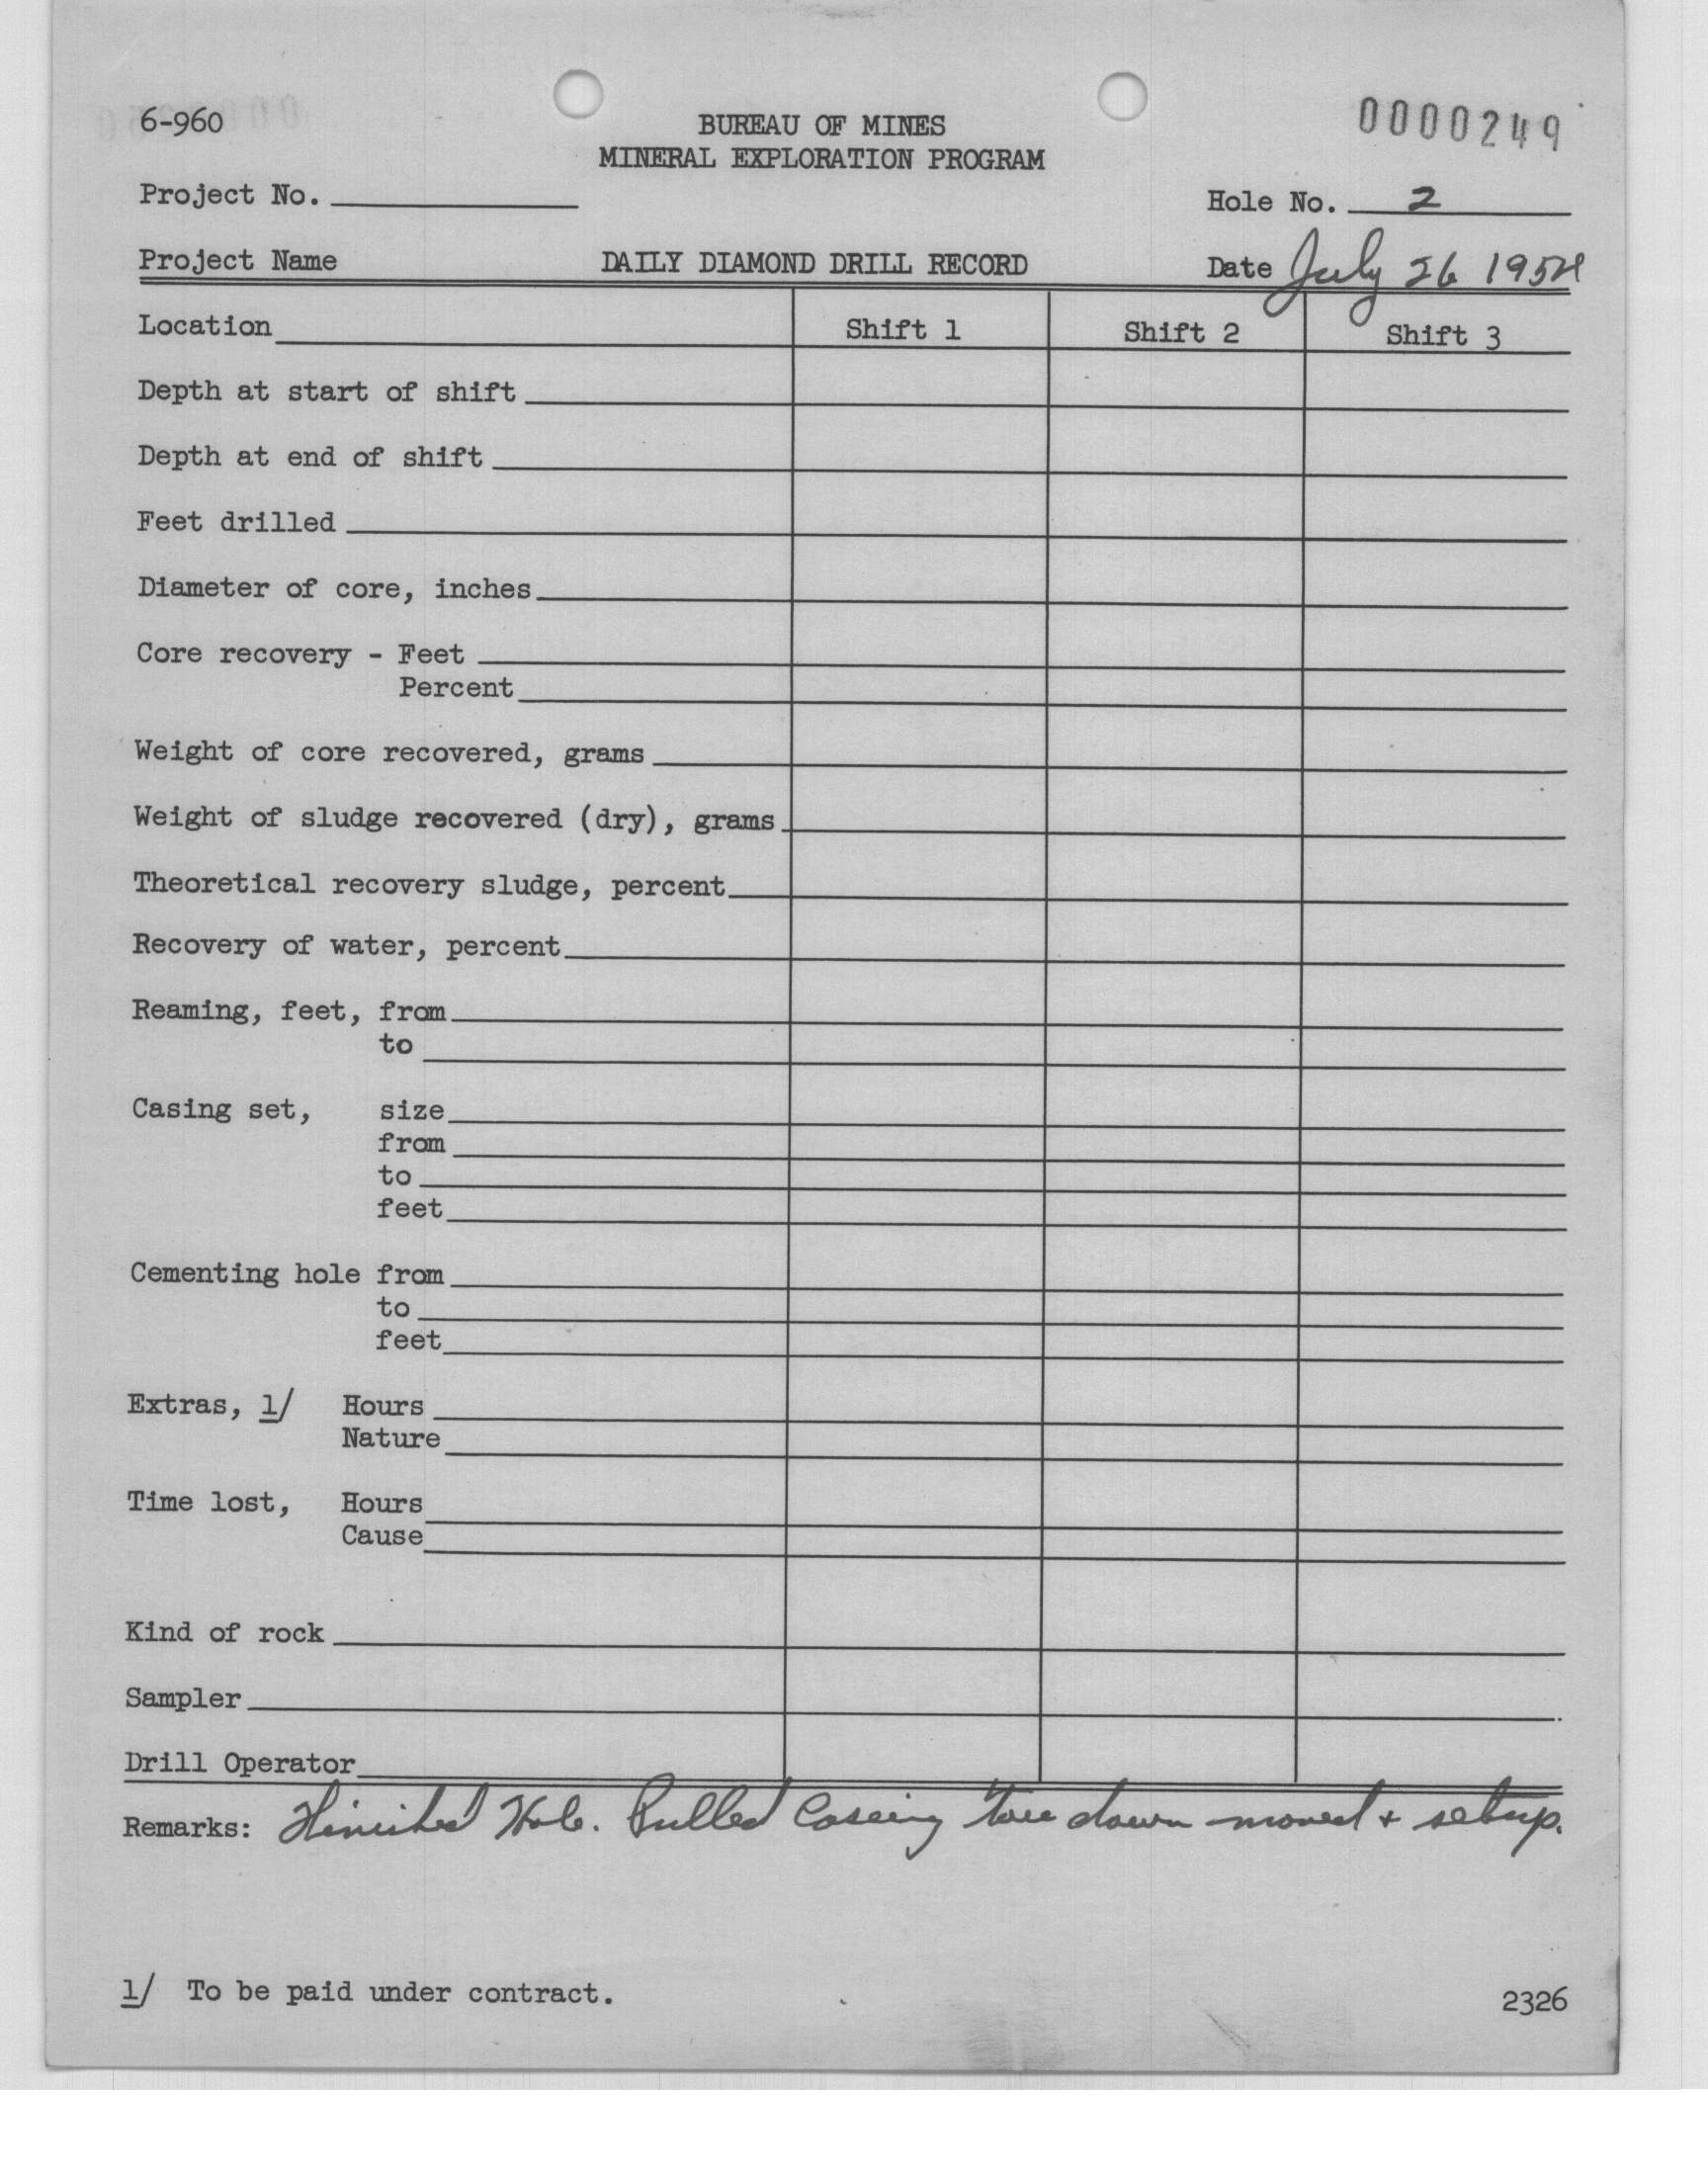 6-960
BUREAU OF MINES
0000249
MINERAL EXPLORATION PROGRAM
Project No.
Hole No. 2
Project Name DAILY DIAMOND DRILL RECORD Date July 26 1954
Location Shift 1 Shift 2 Shift 3
Depth at start of shift
Depth at end of shift
Feet drilled
Diameter of core, inches
Core recovery - Feet
Percent
Weight of core recovered, grams
Weight of sludge recovered (dry), grams
Theoretical recovery sludge, percent
Recovery of water, percent
Reaming, feet, from
to
Casing set, size
from
to
feet
Cementing hole from
to
feet
Extras, 1/ Hours
Nature
Time lost, Hours
Cause
Kind of rock
Sampler
Drill Operator
Remarks: Finished Hole. Pulled Caseing tore down moved + setup.
1/ To be paid under contract.
2326